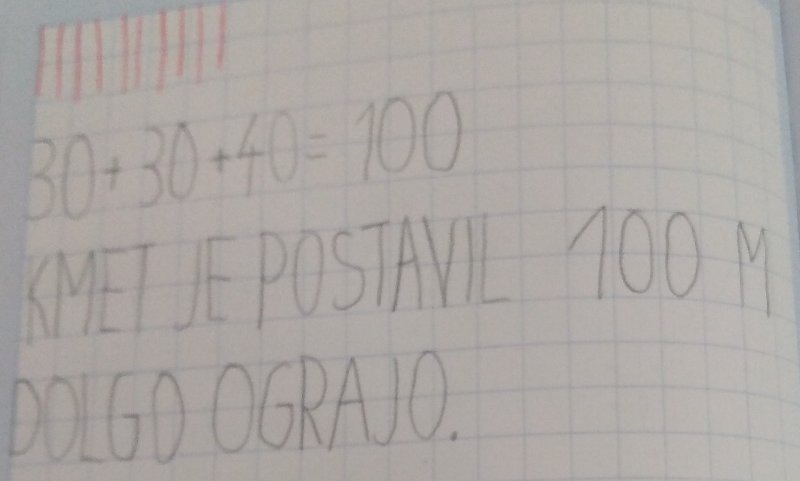 30+30+40=100
KMET JE POSTAVIL 100 M
DOLGO OGRAJO.